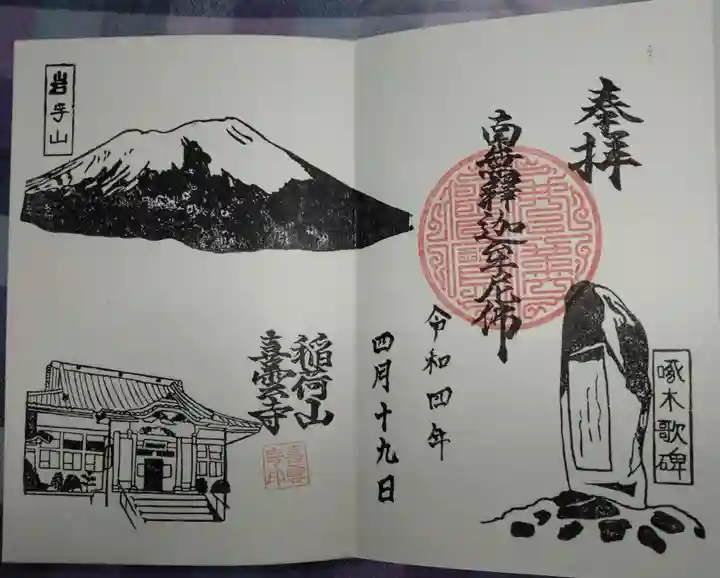 奉拝
南無釋迦牟尼佛
令和四年
四月十九日
啄木歌碑
岩手山
稲荷山
喜雲寺